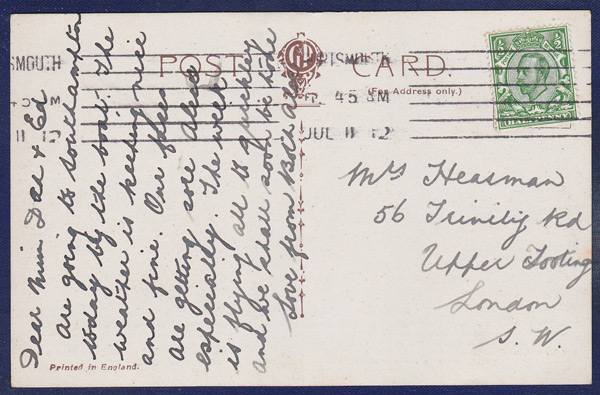 POST CARD.
(For Address only.)
PORTSMOUTH
4 5 AM
JUL 11 12
SMOUTH
45 M
11 12
½ ½
HALFPENNY
Dear Mum Dad & Ed
are going to Southampton
today by the boat. The
weather is keeping nice
and fine. Our faces
are getting sore
especially. The week
is flying all to quickly
and we shall soon be home
Love from Both
Mrs Heasman
56 Trinity Rd
Upper Tooting
London
S. W.
Printed in England.